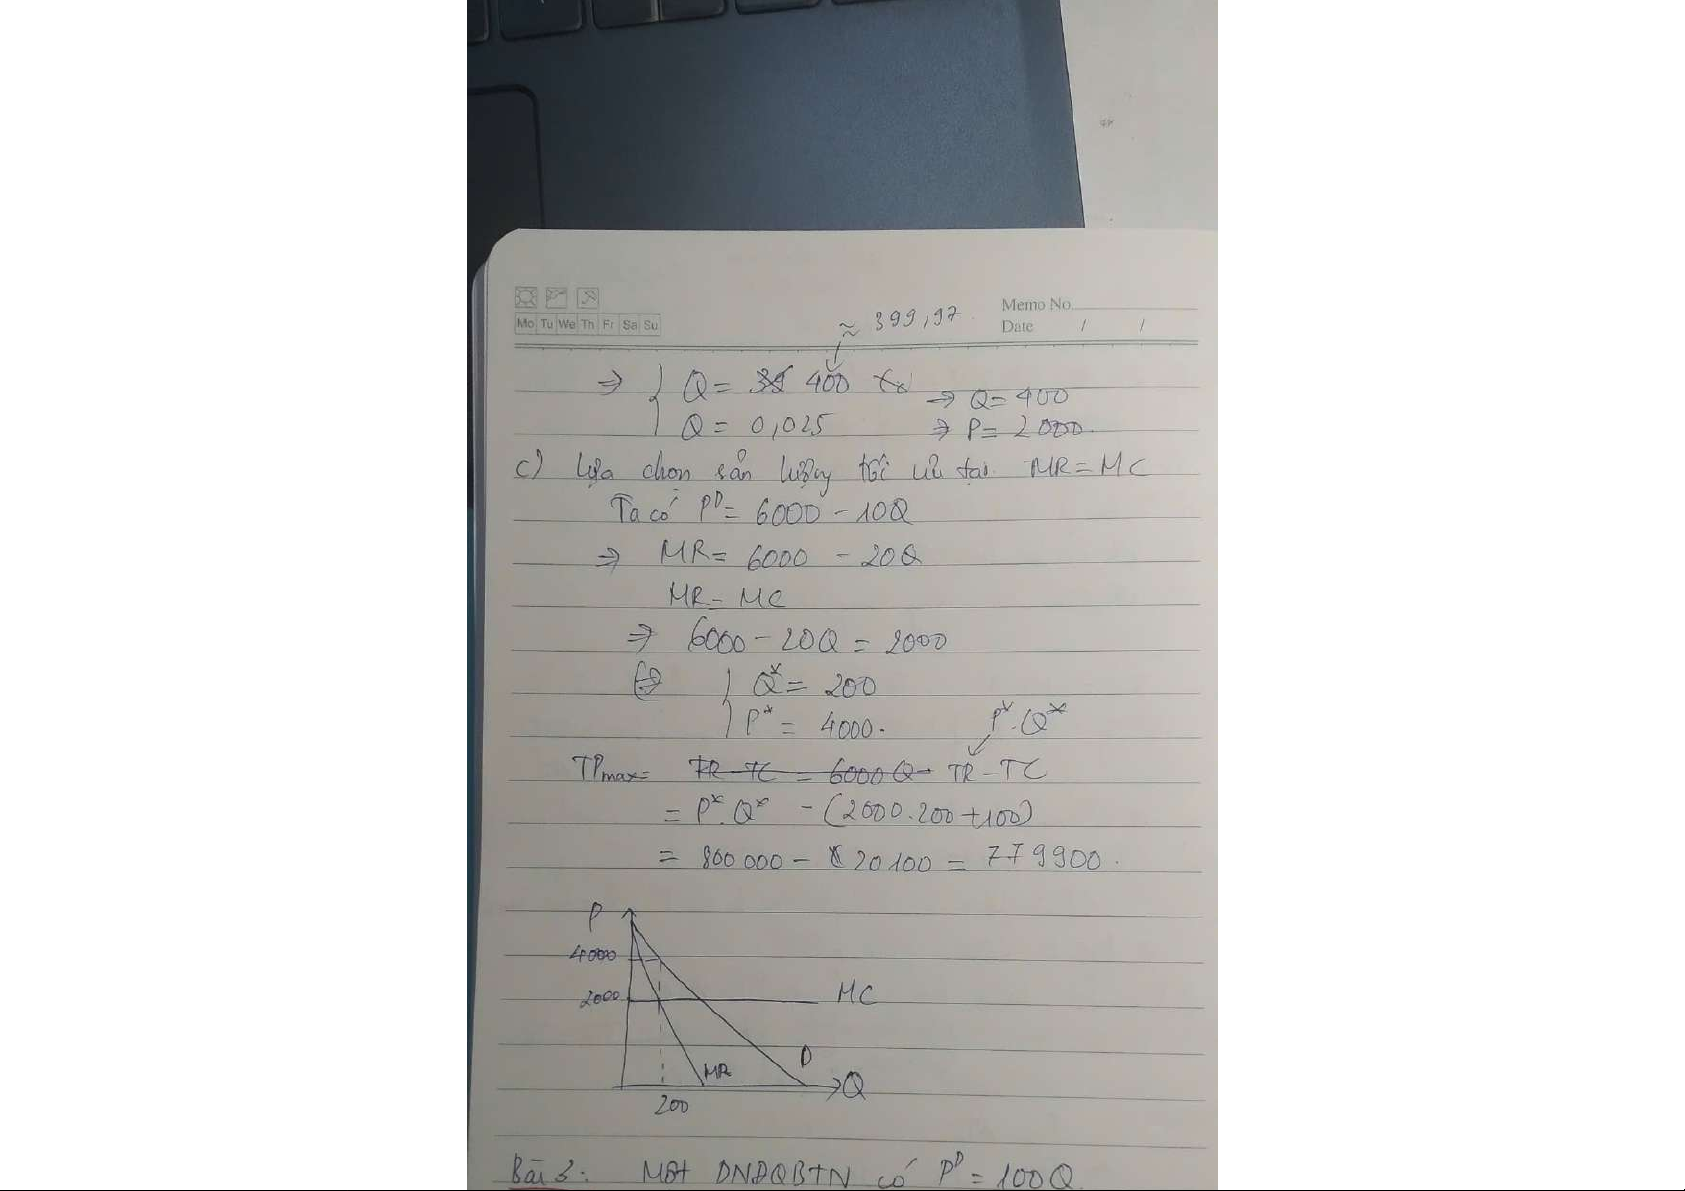 Memo No.
Mo Tu We Th Fr Sa Su
Date / /
≈ 399,97
⇒ { Q = 400
Q = 0,025
⇒ Q = 400
⇒ P = 2000
c) Lựa chọn sản lượng tối ưu tại MR = MC
Ta có P^D = 6000 - 10Q
⇒ MR = 6000 - 20Q
MR = MC
⇒ 6000 - 20Q = 2000
⇔ { Q* = 200
P* = 4000.
P*.Q*
TPmax = TR - TC = 6000Q - TR - TC
= P*.Q* - (2000.200 + 100)
= 800 000 - 20 100 = 779900.
P
4000
2000
MC
D
MR
Q
200
Bài 3: Một DNĐQBTN có P^D = 100Q